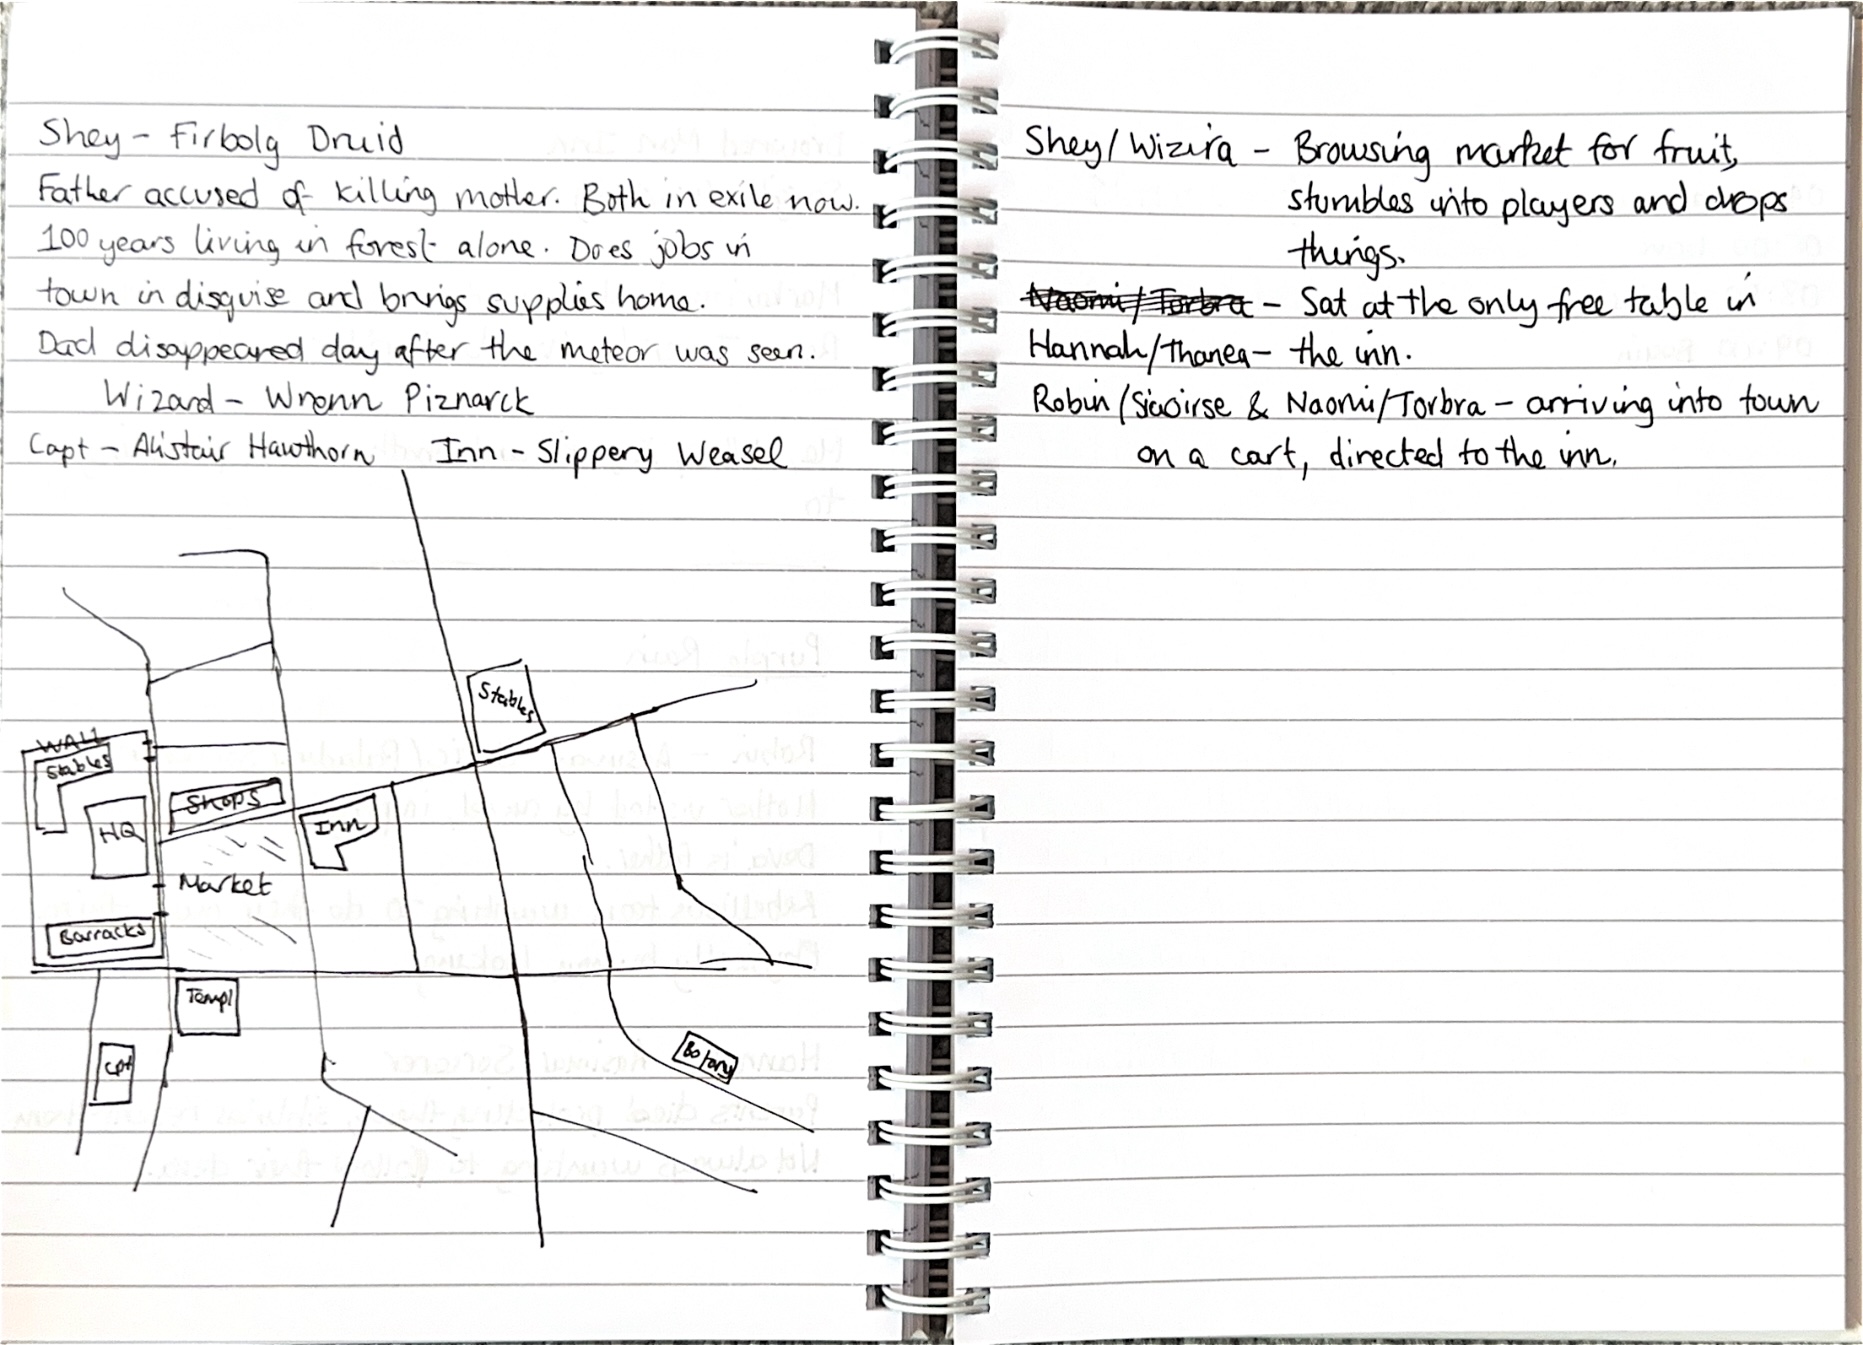 Shey - Firbolg Druid
Father accused of killing mother. Both in exile now.
100 years living in forest alone. Does jobs in
town in disguise and brings supplies home.
Dad disappeared day after the meteor was seen.
Wizard - Wrenn Piznarck
Capt - Alistair Hawthorn Inn - Slippery Weasel
Stables
WALL
Stables
Shops
HQ
Inn
Market
Barracks
Templ
Cpt
Botany
Shey/Wizira - Browsing market for fruit,
stumbles into players and drops
things.
Naomi/Torbra - Sat at the only free table in
Hannah/Thanea - the inn.
Robin/Siaoirse & Naomi/Torbra - arriving into town
on a cart, directed to the inn.
Purple Rain